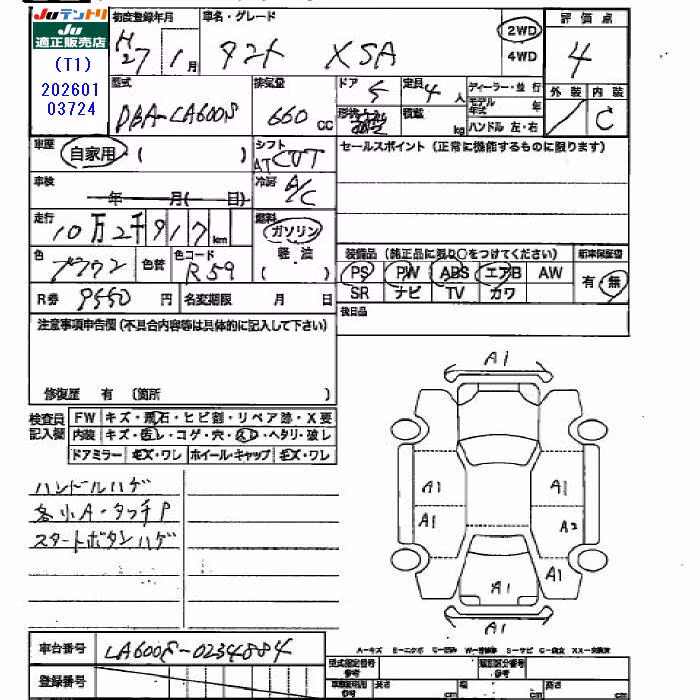 Juテントリ
Ju
適正販売店
(T1)
202601
03724
初度登録年月
H27 1月
車名・グレード
タント XSA
2WD
4WD
評価点
4
型式
DBA-LA600S
排気量
660 cc
ドア
5
定員
4人
形状
積載
kg
ディーラー・並行
モデル年式 年
ハンドル 左・右
外装
内装
C
車歴
自家用・( )
シフト
AT CVT
セールスポイント (正常に機能するものに限ります)
車検
年 月( 日)
冷房
A/C
走行
10万2千917km
燃料
ガソリン
軽油
( )
色
ブラウン
色替
色コード
R59
装備品 (純正品に限り○をつけてください)
新車保証書
PS PW ABS エアB AW
SR ナビ TV カワ
有・無
R券 9550円
名変期限 月 日
後日品
注意事項申告欄 (不具合内容等は具体的に記入して下さい)
修復歴 有 〔箇所 〕
検査員記入欄
FW キズ・飛石・ヒビ割・リペア跡・X要
内装 キズ・ ・コゲ・穴・ ・ヘタリ・破レ
ドアミラー キズ・ワレ ホイール・キャップ キズ・ワレ
ハンドルハゲ
各小A・タッチP
スタートボタンハゲ
A1
A1
A1
A1
A2
A1
A1
A1
A1
車台番号 LA600S-0234884
登録番号
A-キズ E-エクボ U-凹み W-補修跡 S-サビ C-腐食 XX-交換済
型式指定番号
参考
類別区分番号
参考
参考
長さ cm
幅 cm
高さ cm